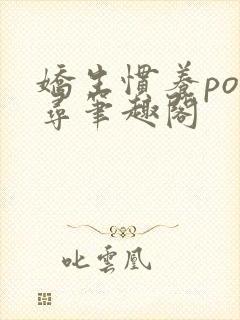 嬌生慣養po
尋筆趣閣
叱雲凰